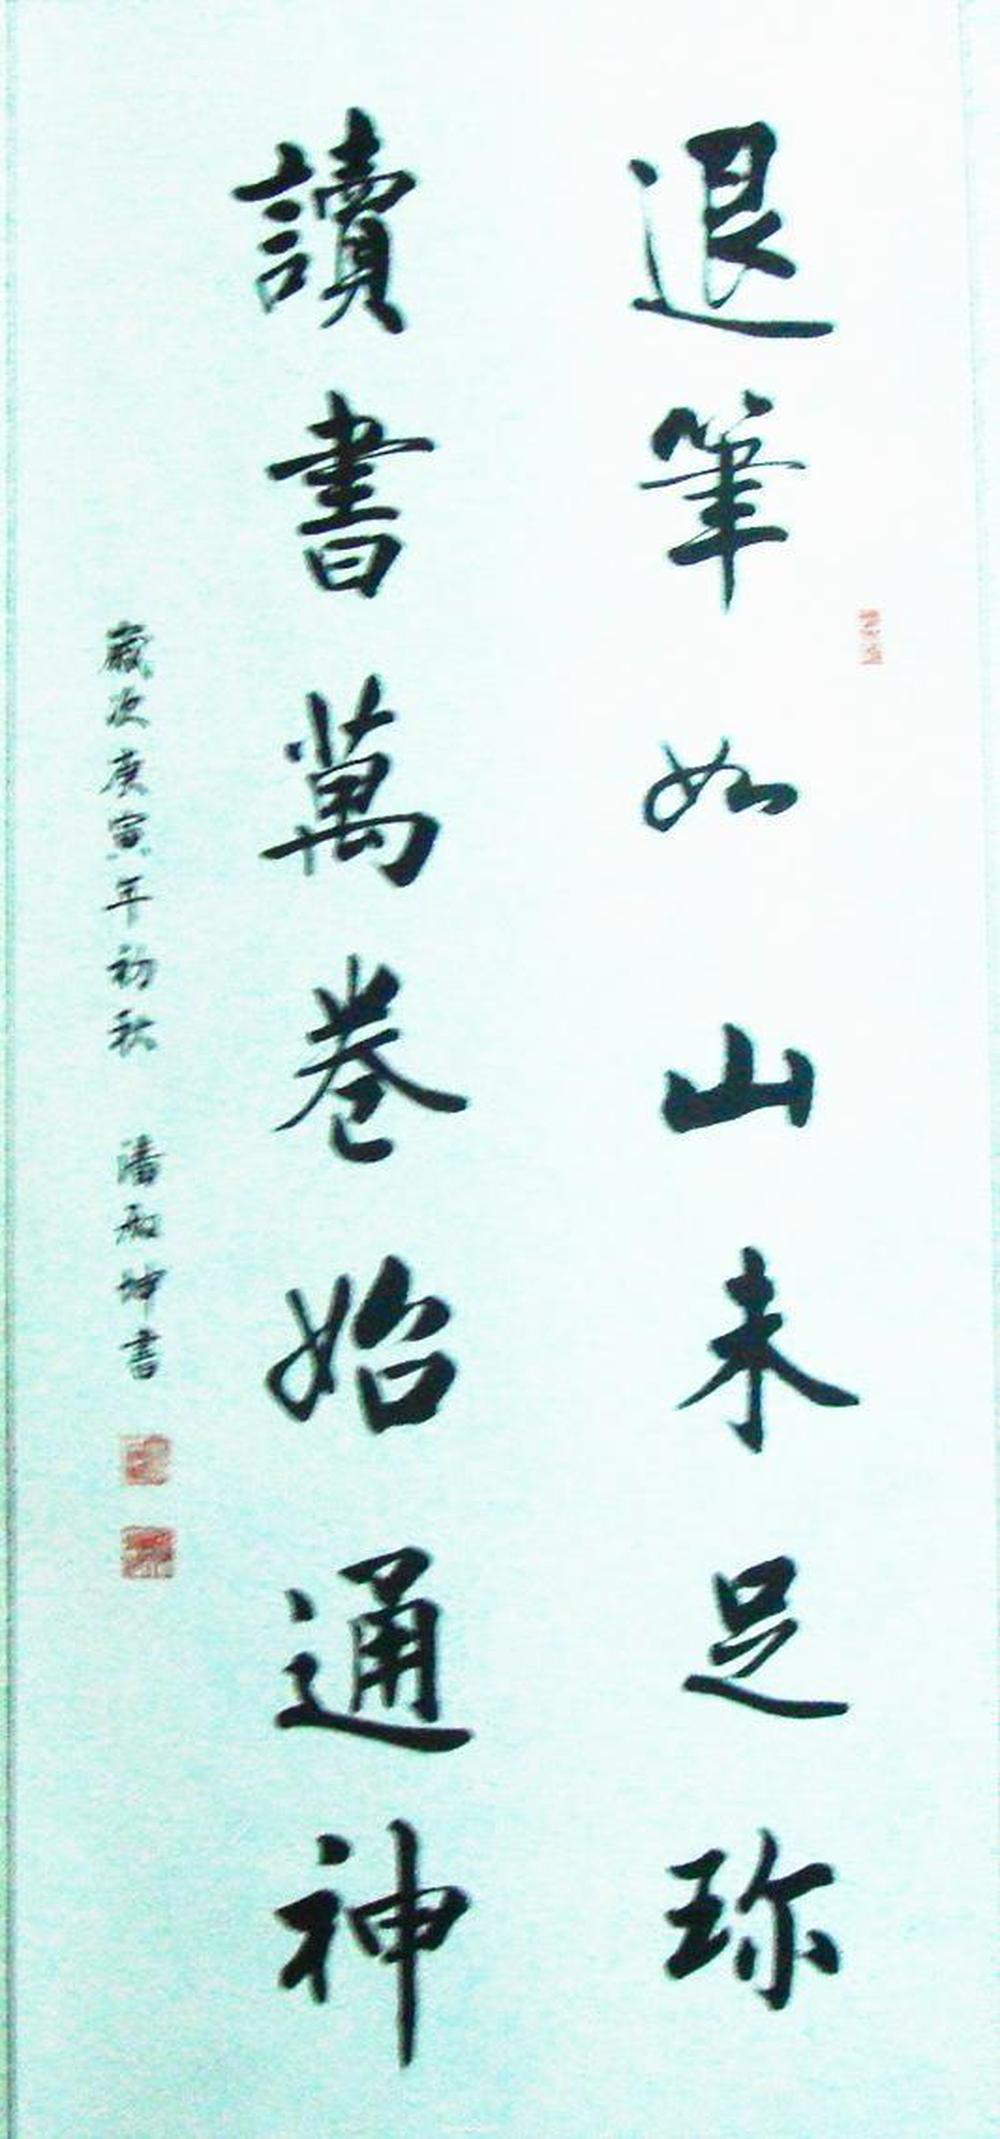 退筆如山未足珎
讀書萬卷始通神
歲次庚寅年初秋 潘和坤書